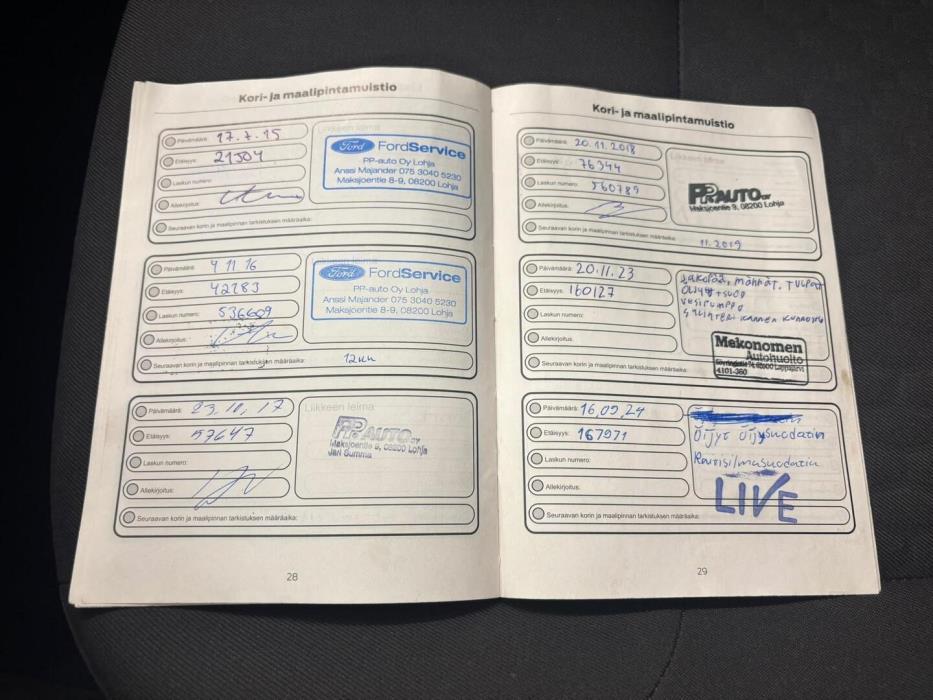 Kori- ja maalipintamuistio
Päivämäärä: 17.7.15
Etäisyys: 21504
Laskun numero:
Allekirjoitus:
Seuraavan korin ja maalipinnan tarkistuksen määräaika:
Liikkeen leima
Ford FordService
PP-auto Oy Lohja
Anssi Majander 075 3040 5230
Maksjoentie 8-9, 08200 Lohja
Päivämäärä: 4 11 16
Etäisyys: 42283
Laskun numero: 536609
Allekirjoitus:
Seuraavan korin ja maalipinnan tarkistuksen määräaika: 12 kk
Liikkeen leima
Ford FordService
PP-auto Oy Lohja
Anssi Majander 075 3040 5230
Maksjoentie 8-9, 08200 Lohja
Päivämäärä: 23.10.17
Etäisyys: 57647
Laskun numero:
Allekirjoitus:
Seuraavan korin ja maalipinnan tarkistuksen määräaika:
Liikkeen leima
PP AUTO OY
Maksjoentie 9, 08200 Lohja
Jari Summa
28
Kori- ja maalipintamuistio
Päivämäärä: 20.11.2018
Etäisyys: 76344
Laskun numero: 560789
Allekirjoitus:
Seuraavan korin ja maalipinnan tarkistuksen määräaika: 11.2019
Liikkeen leima
PP AUTO OY
Maksjoentie 9, 08200 Lohja
Päivämäärä: 20.11.23
Etäisyys: 160127
Laskun numero:
Allekirjoitus:
Seuraavan korin ja maalipinnan tarkistuksen määräaika:
Jakopää, männät, tulpat
Öljyt + suod
vesipumppu
sylinteri kannen kunnostus
Mekonomen
Autohuolto
Lappajärvi
4101-360
Päivämäärä: 16.09.24
Etäisyys: 167971
Laskun numero:
Allekirjoitus:
Seuraavan korin ja maalipinnan tarkistuksen määräaika:
Öljyt Öljysuodatin
Raitisilmasuodatin
LIVE
29